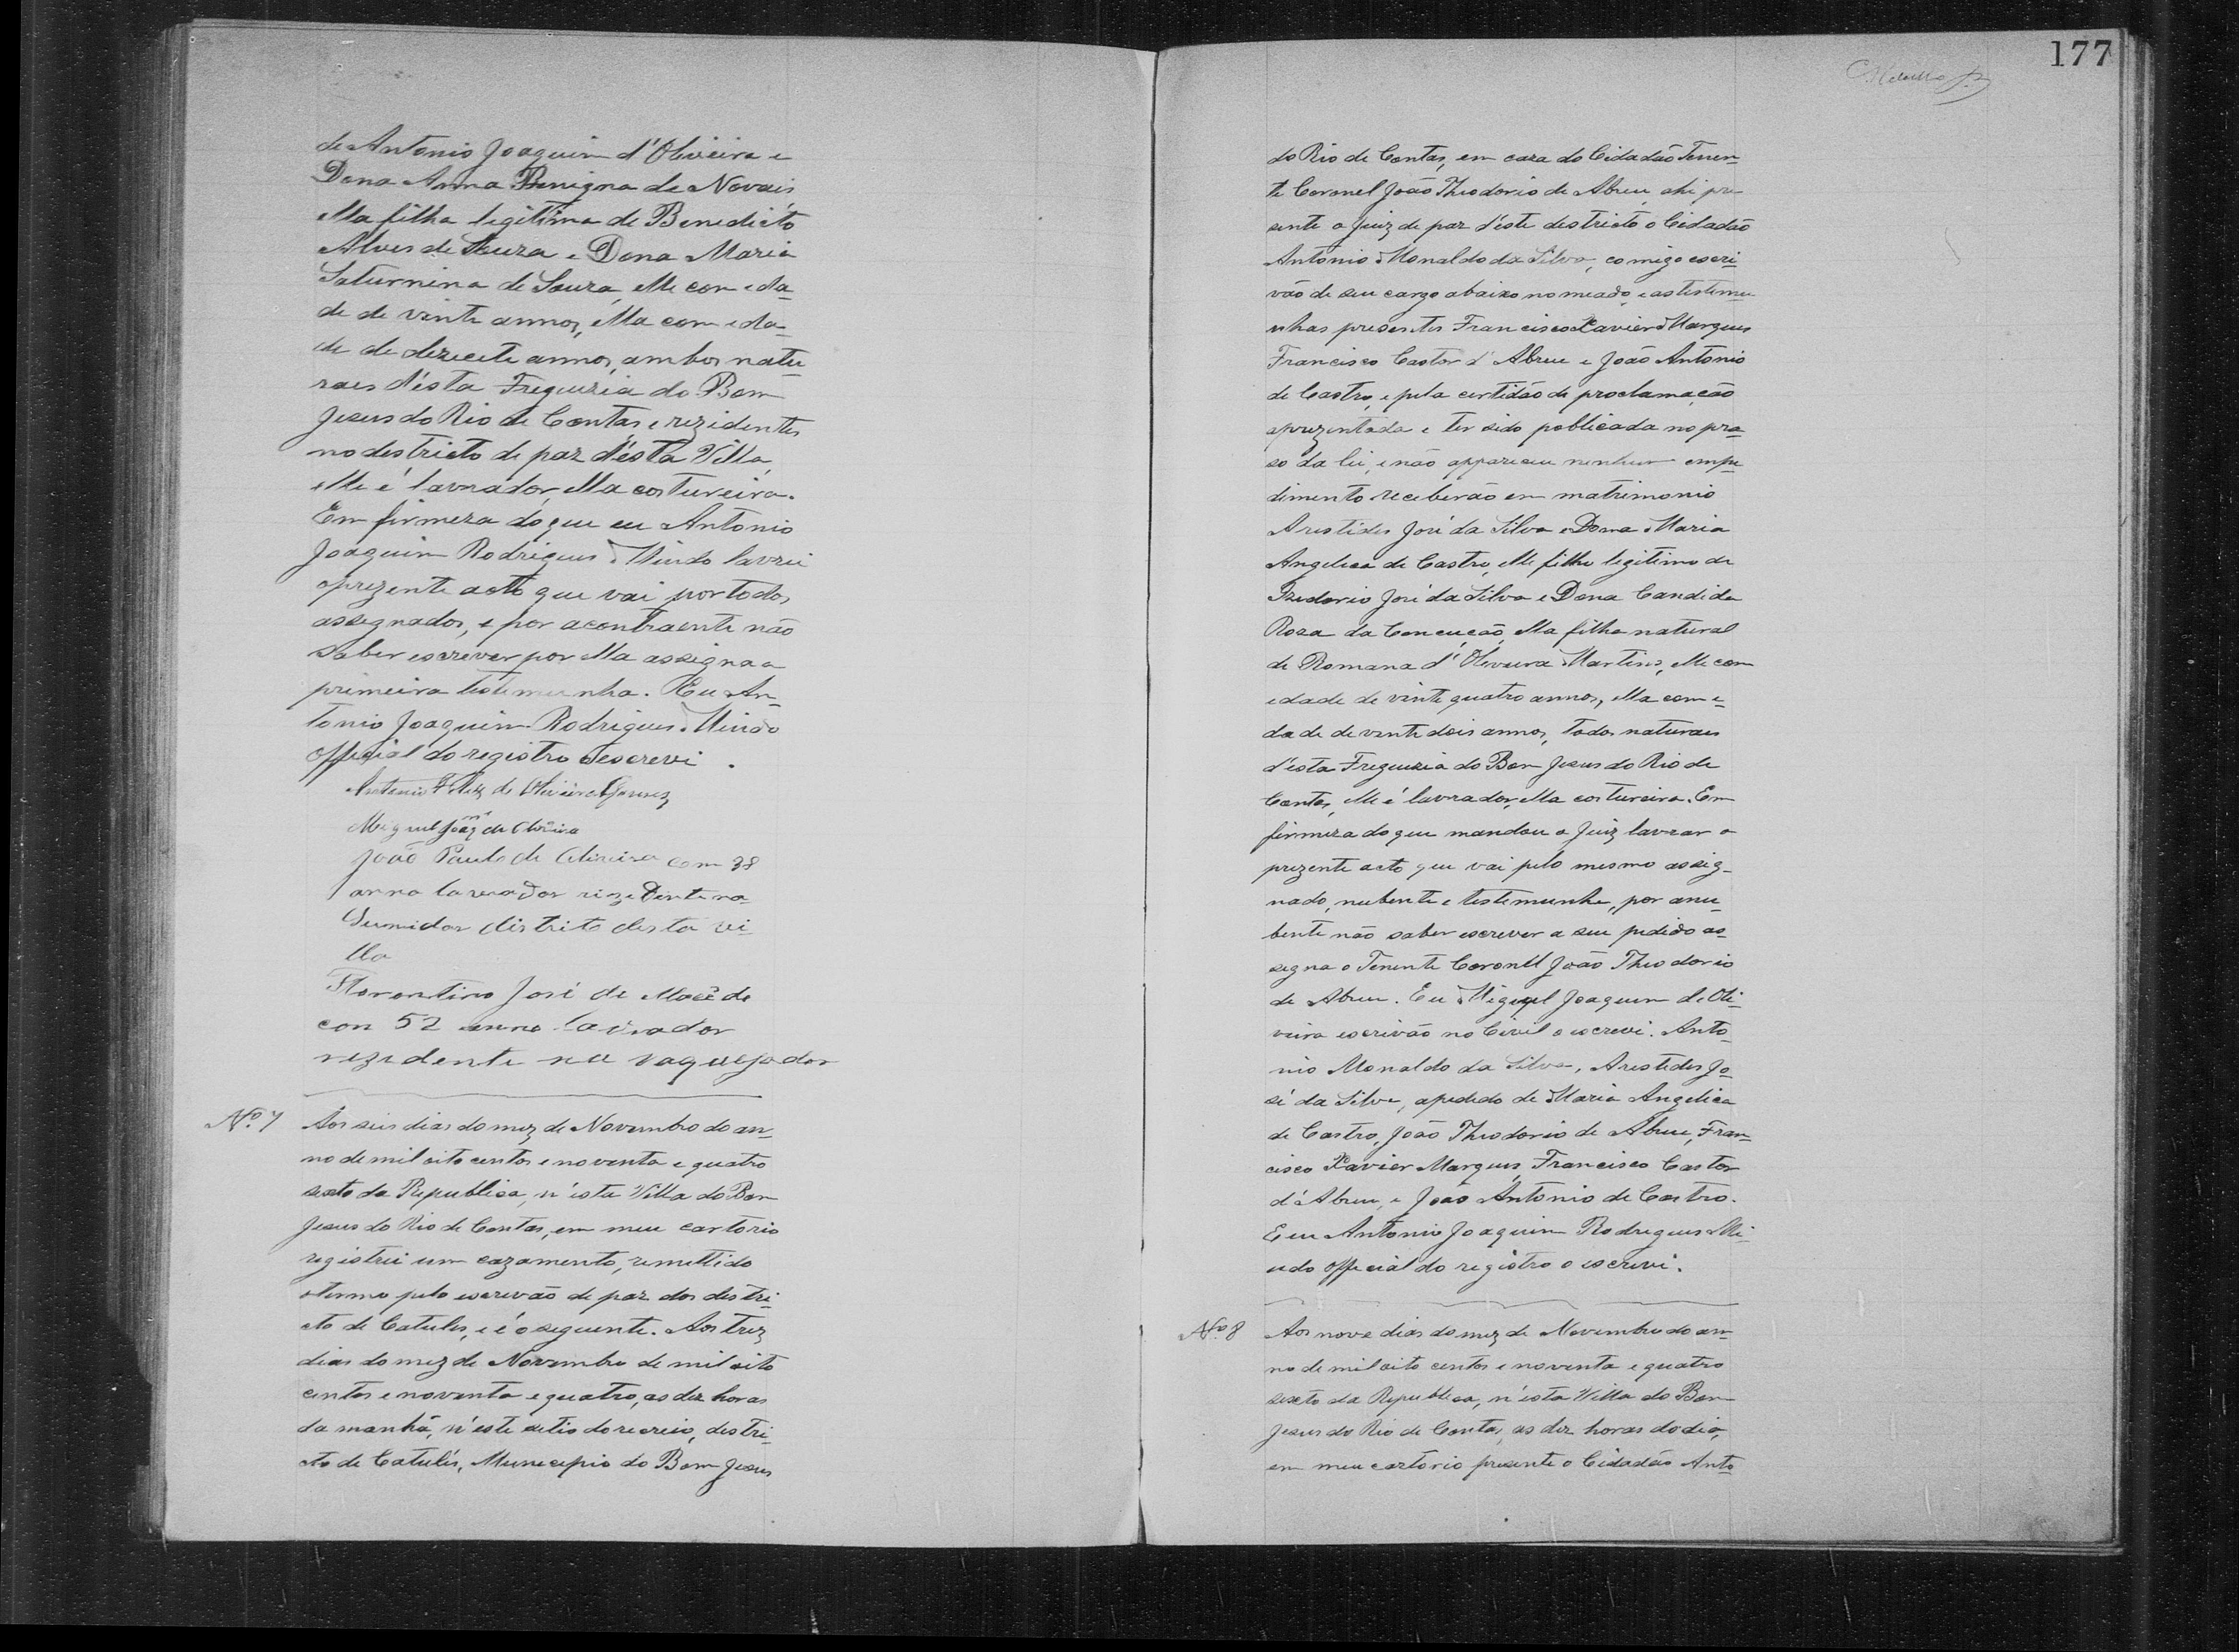 de Antonio Joaquim d'Oliveira e
Dona Anna Benigna de Novais
ella filha legitima de Benedicto
Alves de Souza e Dona Maria
Saturnina de Souza, elle com eda-
de de vinte annos, ella com eda-
de de dezecete annos, ambos natu
raes d'ésta Freguezia do Bom
Jesus do Rio de Contas e rezidentes
no destricto de paz d'ésta Villa,
elle é lavrador, ella costureira.
Em firmeza do que eu Antonio
Joaquim Rodrigues Miudo lavrei
o prezente acto que vai por todos
assegnados, e por a contraente não
saber escrever por ella assigna a
primeira testemunha. Eu An-
tonio Joaquim Rodrigues Miudo
official do registro o escrevi.
Antonio Feliz de Oliveira
Miguel Joaqm de Oliveira
João Paulo de Oliveira com 38
anno lavrador rizedente no
Sumidor distrito desta vi
lla
Florentino José de Macêdo
con 52 anno lavrador
rezidente na vaquejador
Nº 7
Aos seis dias do mez de Novembro do an-
no de mil oito centos e noventa e quatro
sexto da Republica, n'ésta Villa do Bom
Jesus do Rio de Contas, em meu cartorio
registrei um cazamento, remettido
o termo pelo escrevão de paz dos destri-
cto de Catulés, e é o seguente. Aos trez
dias do mez de Novembro de mil oito
centos e noventa e quatro, as dez horas
da manhã, n'éste setio do recreio, destri-
cto de Catulés, Municipio do Bom Jesus
177
do Rio de Contas, em caza do Cidadão Tenen-
te Coronel João Theodorio de Abreu, ahi pre-
sente o Juiz de paz d'éste destricto o Cidadão
Antonio Monaldo da Silva, comigo escri-
vão de seu cargo abaixo nomeado, e as testemu-
nhas presentes Francisco Xavier Marques
Francisco Castor d'Abreu e João Antonio
de Castro, e pela certidão de proclamação
aprezentada e ter sido publicada no pra-
so da lei, e não appareceu nenhum empe
dimento receberão em matrimonio
Arestides José da Silva e Dona Maria
Angelica de Castro, elle filho legitimo de
José da Silva e Dona Candida
Rosa da Conceição, ella filha natural
de Romana d'Oliveira Martins, elle com
edade de vinte quatro annos, ella com e-
dade de vinte dois annos, todos naturaes
d'ésta Freguezia do Bom Jesus do Rio de
Contas, elle é lavrador, ella costureira. Em
firmeza do que mandou o Juiz lavrar o
prezente acto que vai pelo mesmo assig-
nado, nubente e testemunha, por a nu-
bente não saber escrever a seu pedido as-
segna o Tenente Coronel João Theodorio
de Abreu. Eu Miguel Joaquim de Oli-
veira escrivão no Civil o escrevi. Anto-
nio Monaldo da Silva, Arestides Jo-
sé da Silva, apedido de Maria Angelica
de Castro, João Theodorio de Abreu, Fran-
cisco Xavier Marques, Francisco Castor
d'Abreu, e João Antonio de Castro.
E eu Antonio Joaquim Rodrigues Mi-
udo official do registro o escrevi.
Nº 8
Aos nove dias do mez de Novembro do an-
no de mil oito centos e noventa e quatro
sexto da Republica, n'ésta Villa do Bom
Jesus do Rio de Contas, as dez horas do dia,
em meu cartorio presente o Cidadão Anto-